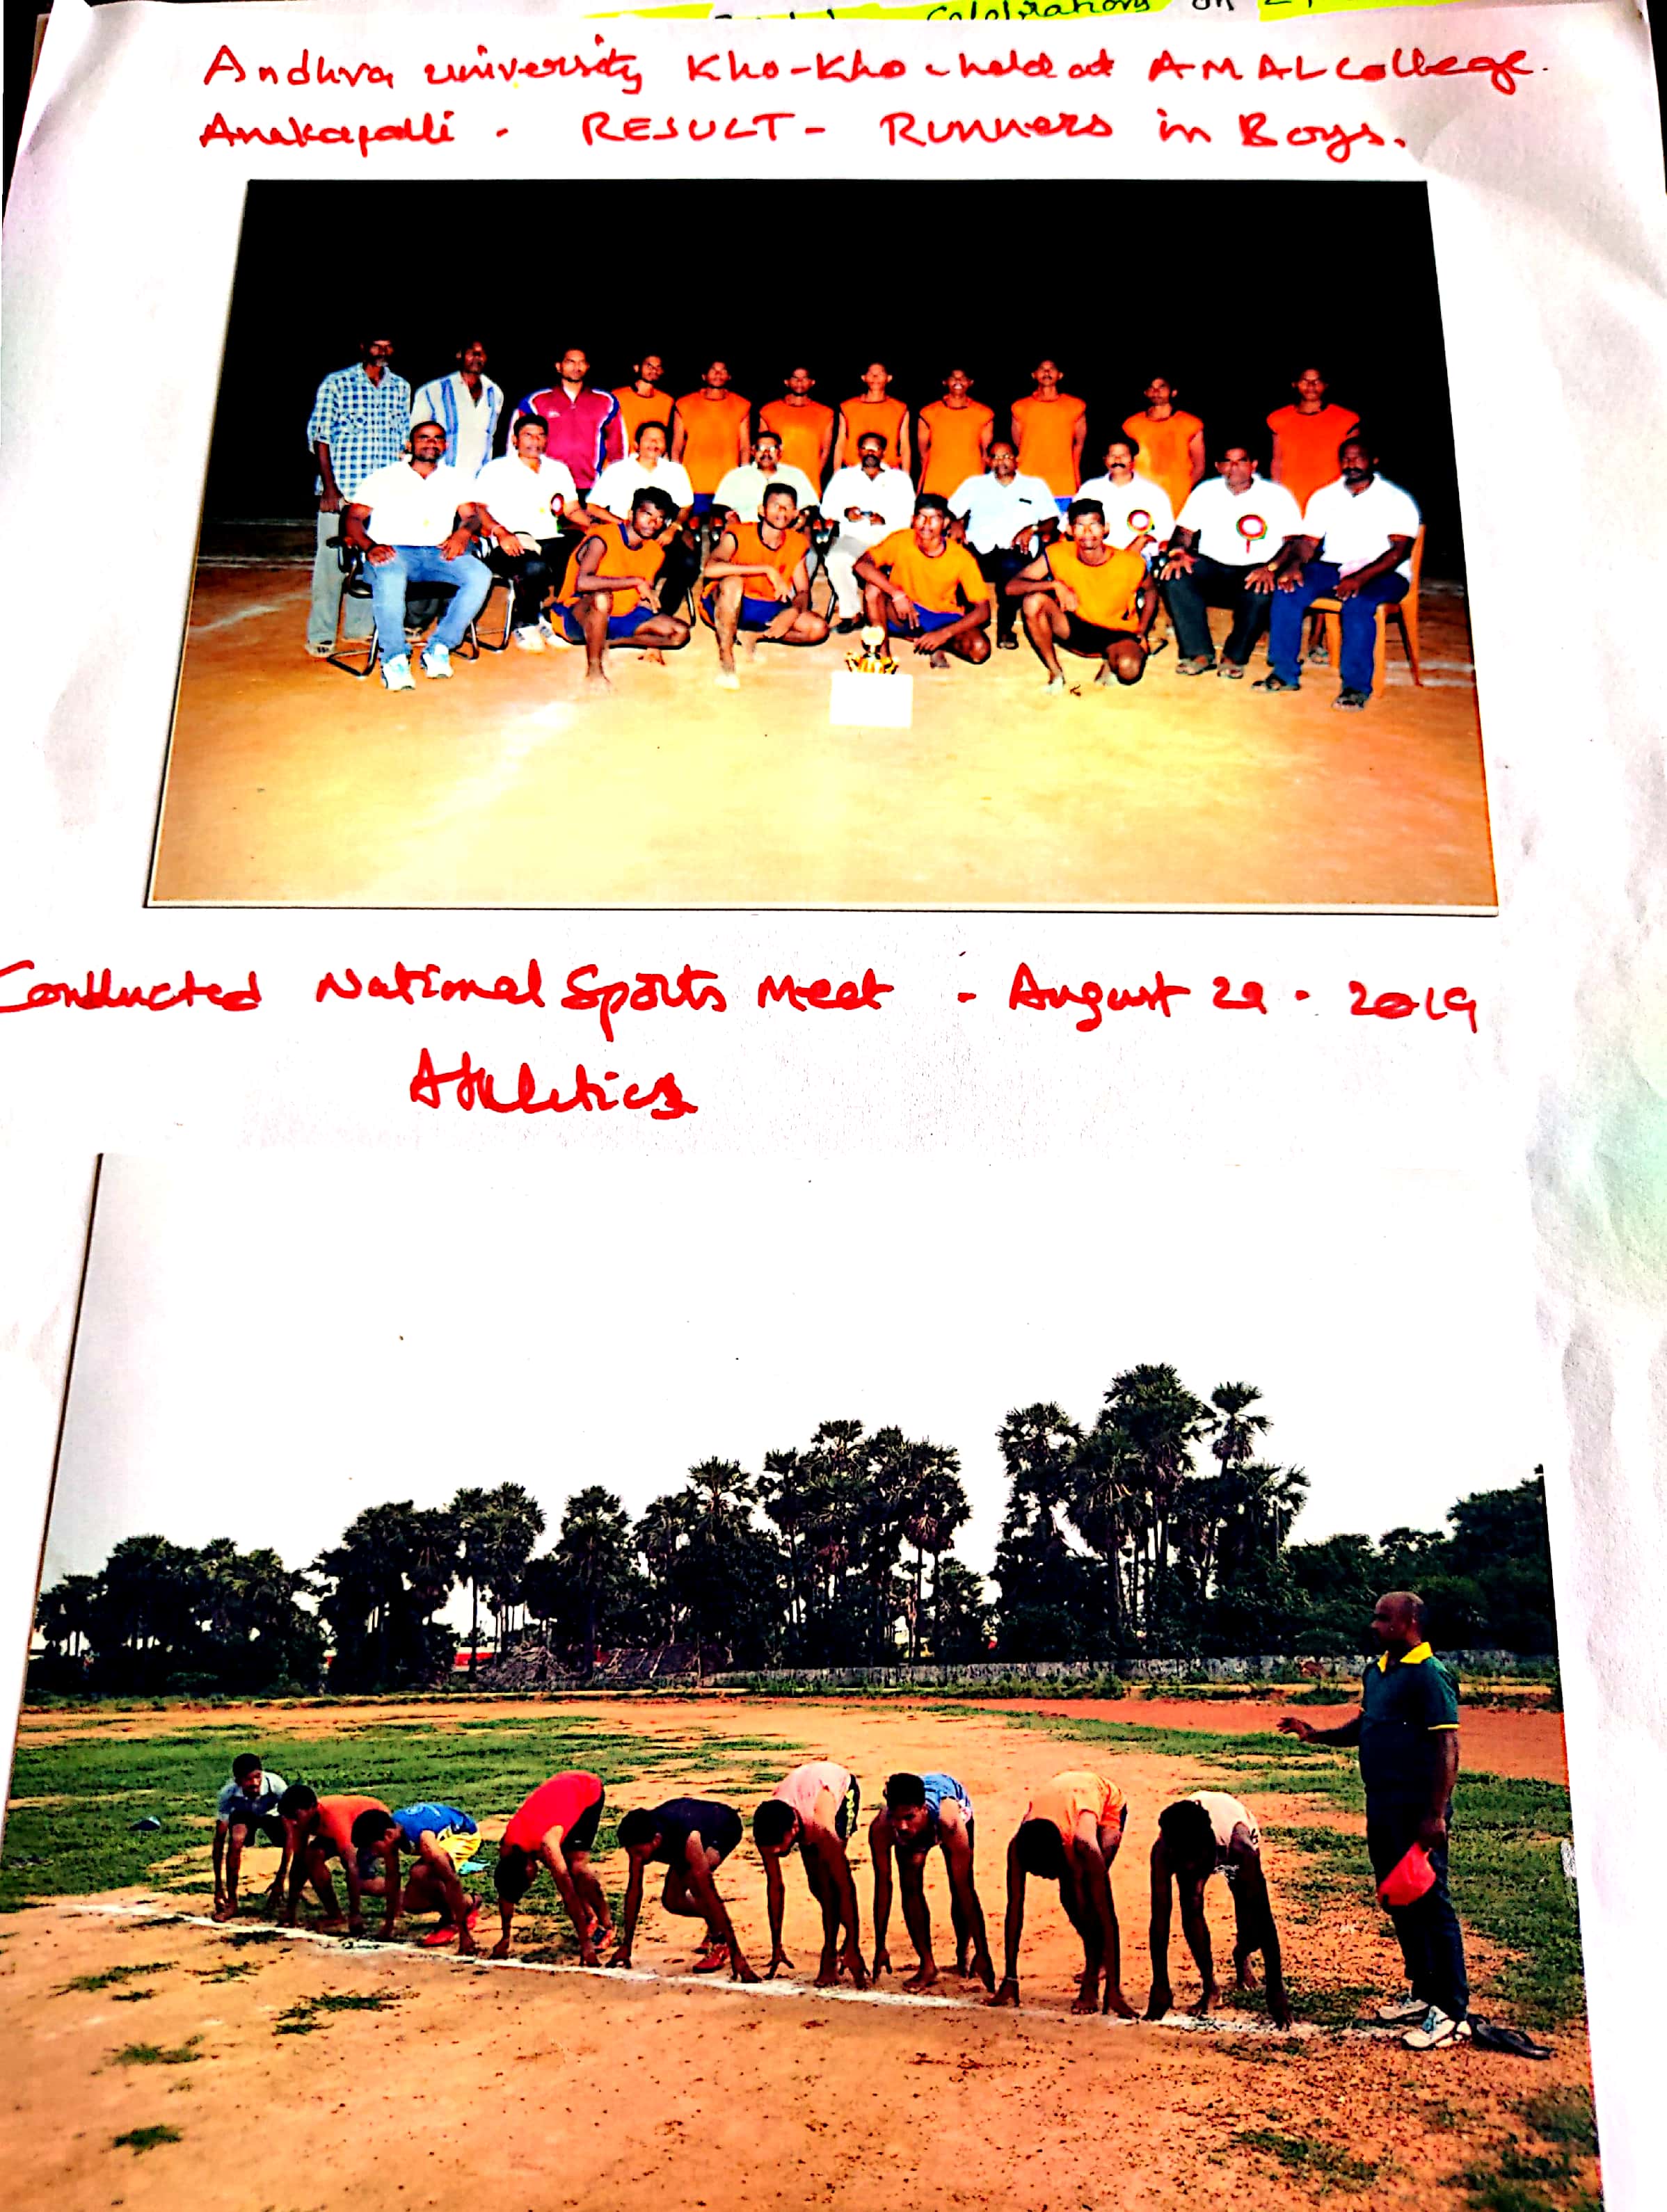 Celebrations on
Andhra university Kho-Kho held at AMAL College.
Anakapalli. RESULT - Runners in Boys.
Conducted National Sports Meet - August 29. 2019
Athletics